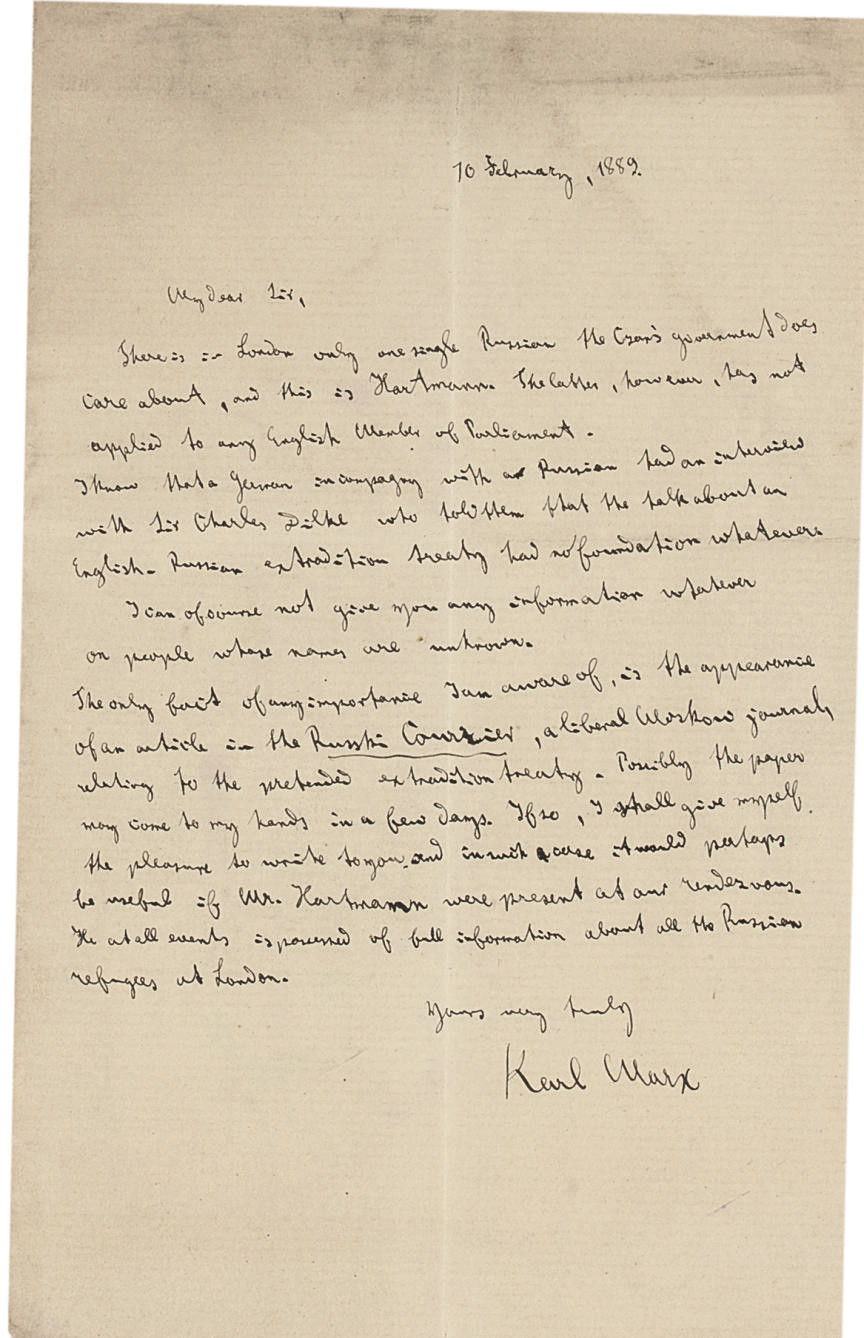 10 February, 1882.
My dear Sir,
There is in London only one single Russian the Czar's government does
care about, and this is Hartmann. The latter, however, has not
applied to any English Member of Parliament.
I know that a German in compagny with a Russian had an interview
with Sir Charles Dilke who told them that the talk about an
English-Russian extradition treaty had no foundation whatever.
I can of course not give you any information whatever
on people whose names are unknown.
The only fact of any importance I am aware of, is the appearance
of an article in the Russki Courrier, a liberal Moskow journal,
relating to the pretended extradition treaty. Possibly the paper
may come to my hands in a few days. If so, I shall give myself
the pleasure to write to you and in such case it would perhaps
be useful if Mr. Hartmann were present at our rendezvous.
He at all events is possessed of full information about all the Russian
refugees at London.
Yours very truly
Karl Marx